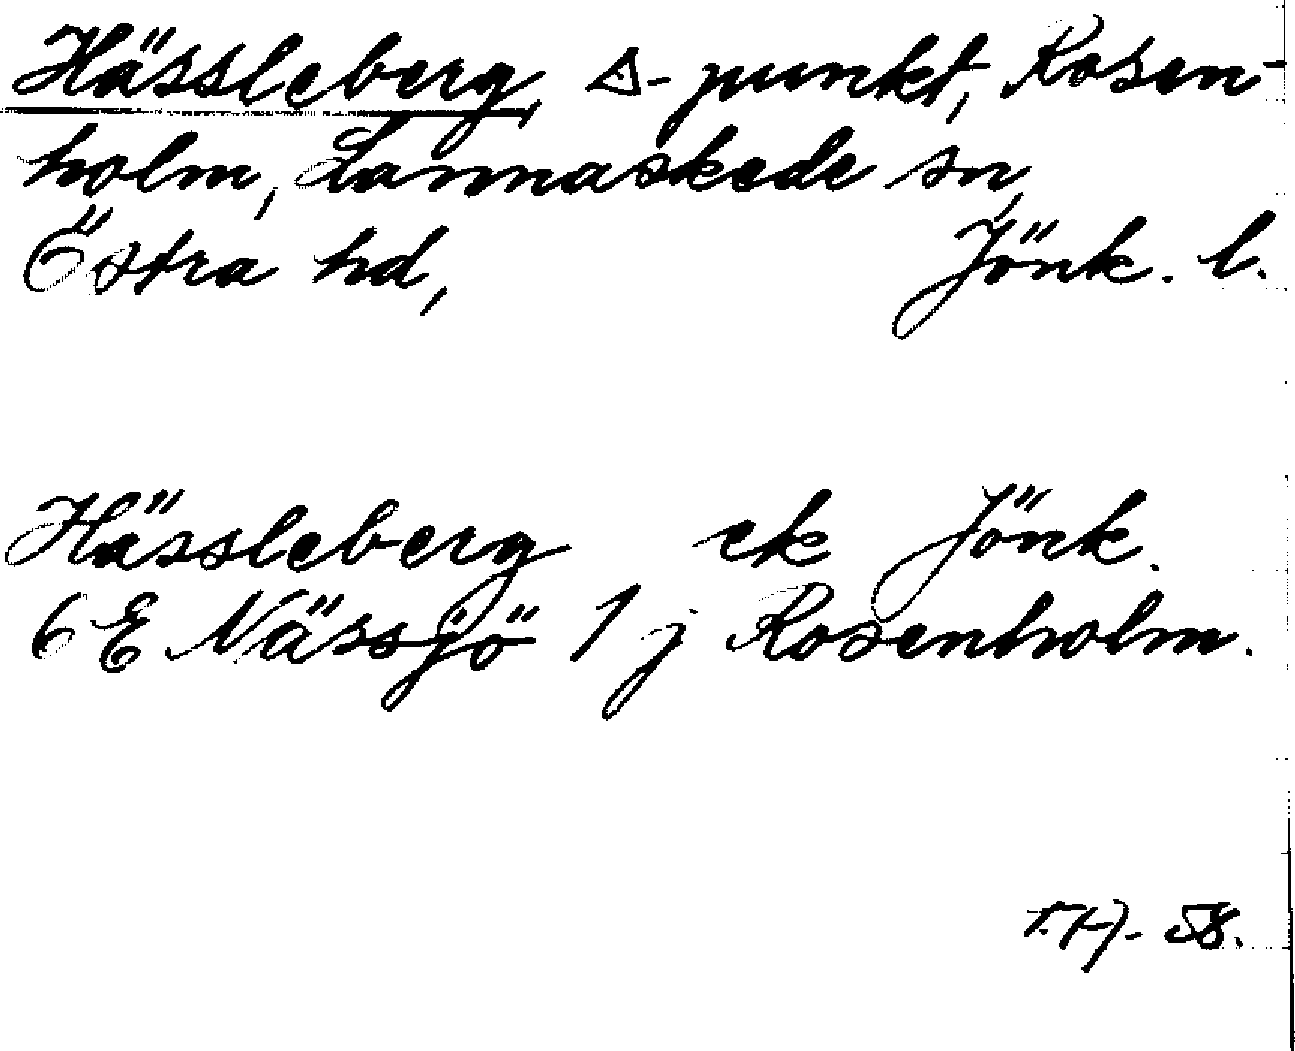 Hässleberg, △-punkt, Rosen-
holm, Lannaskede sn,
Östra hd, Jönk. l.
Hässleberg ek Jönk.
6 E Nässjö 1 j Rosenholm.
58.